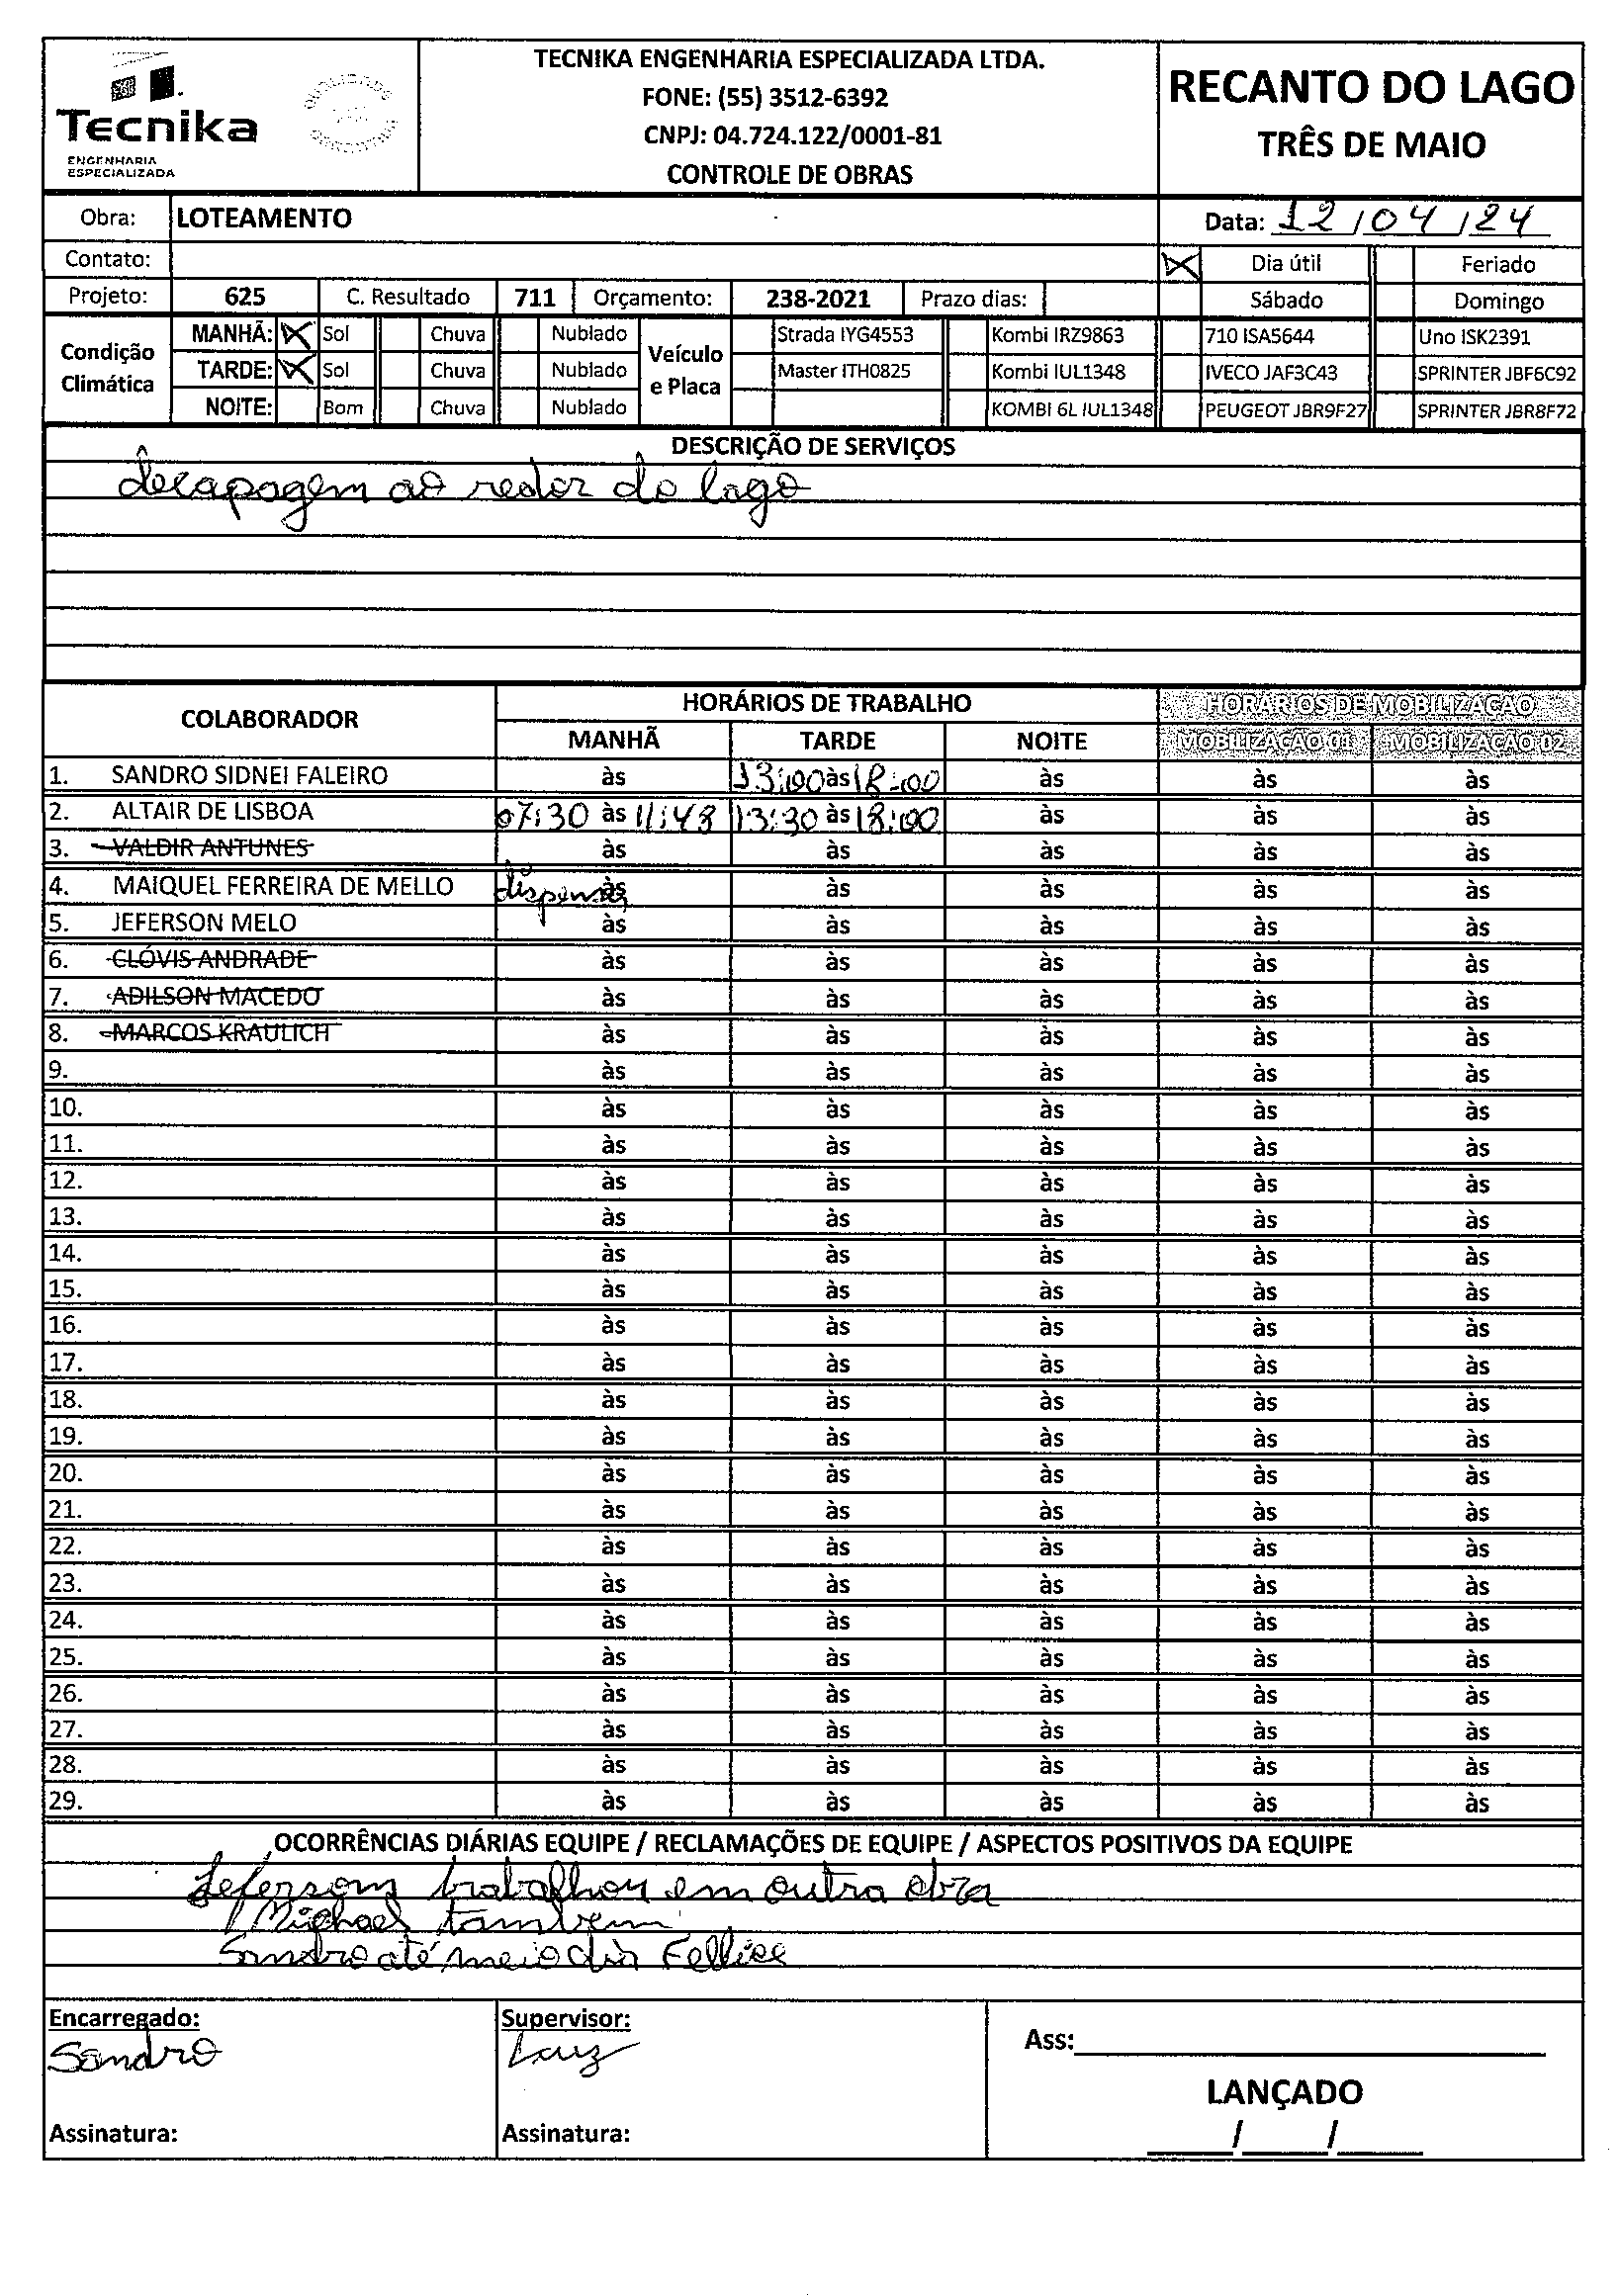 Tecnika
ENGENHARIA
ESPECIALIZADA
TECNIKA ENGENHARIA ESPECIALIZADA LTDA.
FONE: (55) 3512-6392
CNPJ: 04.724.122/0001-81
CONTROLE DE OBRAS
RECANTO DO LAGO
TRÊS DE MAIO
Obra: LOTEAMENTO
Data: 12/04/24
Contato:
Dia útil Feriado
Projeto: 625 C. Resultado 711 Orçamento: 238-2021 Prazo dias: Sábado Domingo
Condição Climática
MANHÃ: Sol Chuva Nublado
TARDE: Sol Chuva Nublado
NOITE: Bom Chuva Nublado
Veículo e Placa
Strada IYG4553 Kombi IRZ9863 710 ISA5644 Uno ISK2391
Master ITH0825 Kombi IUL1348 IVECO JAF3C43 SPRINTER JBF6C92
KOMBI 6L IUL1348 PEUGEOT JBR9F27 SPRINTER JBR8F72
DESCRIÇÃO DE SERVIÇOS
decapagem ao redor do lago
COLABORADOR HORÁRIOS DE TRABALHO HORÁRIOS DE MOBILIZAÇÃO
MANHÃ TARDE NOITE MOBILIZAÇÃO 01 MOBILIZAÇÃO 02
1. SANDRO SIDNEI FALEIRO às 13:00 às 18:00 às às às
2. ALTAIR DE LISBOA 07:30 às 11:48 13:30 às 18:00 às às às
3. VALDIR ANTUNES às às às às às
4. MAIQUEL FERREIRA DE MELLO às às às às às
5. JEFERSON MELO às às às às às
6. CLÓVIS ANDRADE às às às às às
7. ADILSON MACEDO às às às às às
8. MARCOS KRAULICH às às às às às
9. às às às às às
10. às às às às às
11. às às às às às
12. às às às às às
13. às às às às às
14. às às às às às
15. às às às às às
16. às às às às às
17. às às às às às
18. às às às às às
19. às às às às às
20. às às às às às
21. às às às às às
22. às às às às às
23. às às às às às
24. às às às às às
25. às às às às às
26. às às às às às
27. às às às às às
28. às às às às às
29. às às às às às
OCORRÊNCIAS DIÁRIAS EQUIPE / RECLAMAÇÕES DE EQUIPE / ASPECTOS POSITIVOS DA EQUIPE
Jefersom trabalhou em outra obra
Michael tambem
Sandro até meio dia
Encarregado: Supervisor:
Sandro
Ass:
LANÇADO
Assinatura: Assinatura: / /